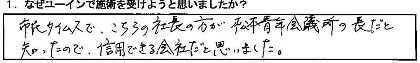 1. なぜユーインで施術を受けようと思いましたか？
市民タイムスで、こちらの社長の方が松本青年会議所の長だと
知ったので、信用できる会社だと思いました。